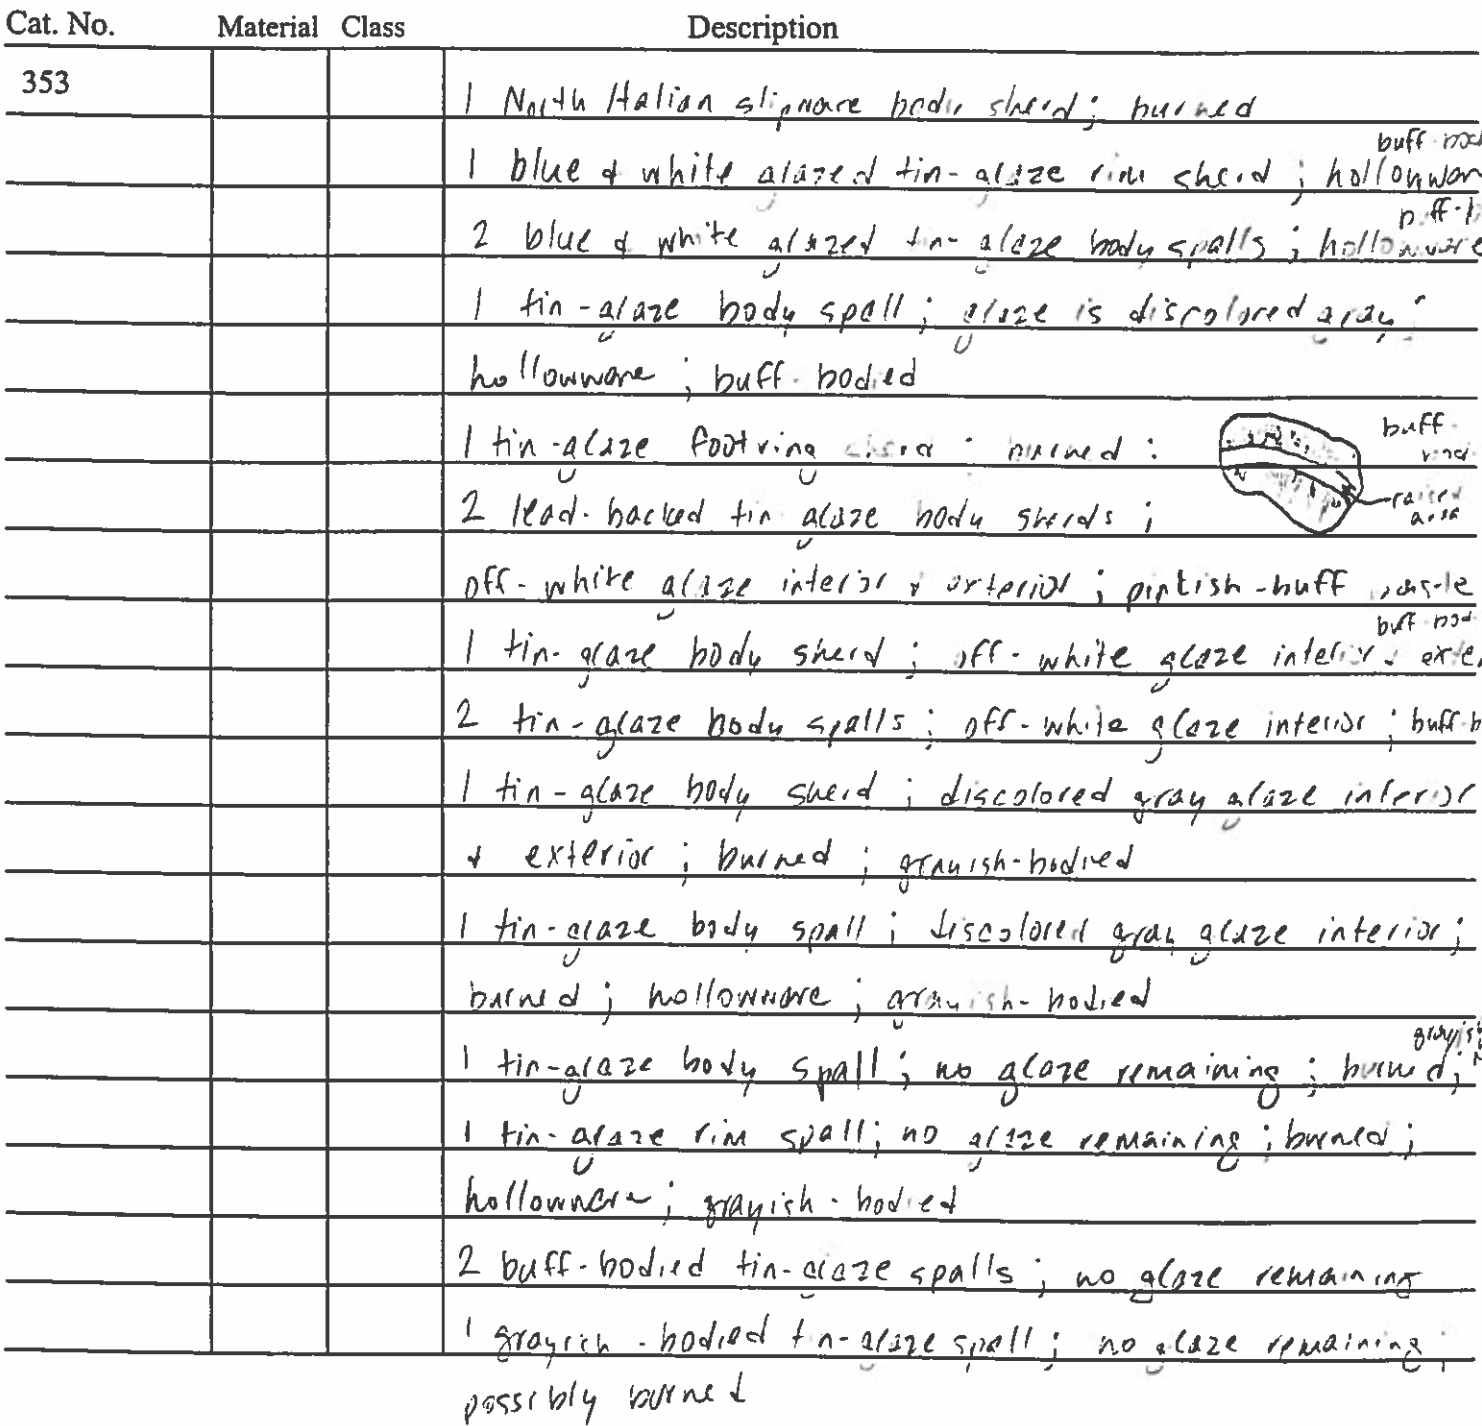 Cat. No. Material Class Description
353
1 North Italian slipware body sherd; burned
buff-bod
1 blue & white glazed tin-glaze rim sherd; hollowwar
buff-b
2 blue & white glazed tin-glaze body spalls; hollowware
1 tin-glaze body spall; glaze is discolored gray;
hollowware; buff-bodied
1 tin-glaze footring sherd; burned; buff-bod
2 lead-backed tin glaze body sherds; raised area
off-white glaze interior & exterior; pinkish-buff
buff-bod
1 tin-glaze body sherd; off-white glaze interior & exte
2 tin-glaze body spalls; off-white glaze interior; buff-b
1 tin-glaze body sherd; discolored gray glaze interior
& exterior; burned; grayish-bodied
1 tin-glaze body spall; discolored gray glaze interior;
burned; hollowware; grayish-bodied
grayish
1 tin-glaze body spall; no glaze remaining; burned;
1 tin-glaze rim spall; no glaze remaining; burned;
hollowware; grayish-bodied
2 buff-bodied tin-glaze spalls; no glaze remaining
1 grayish-bodied tin-glaze spall; no glaze remaining;
possibly burned